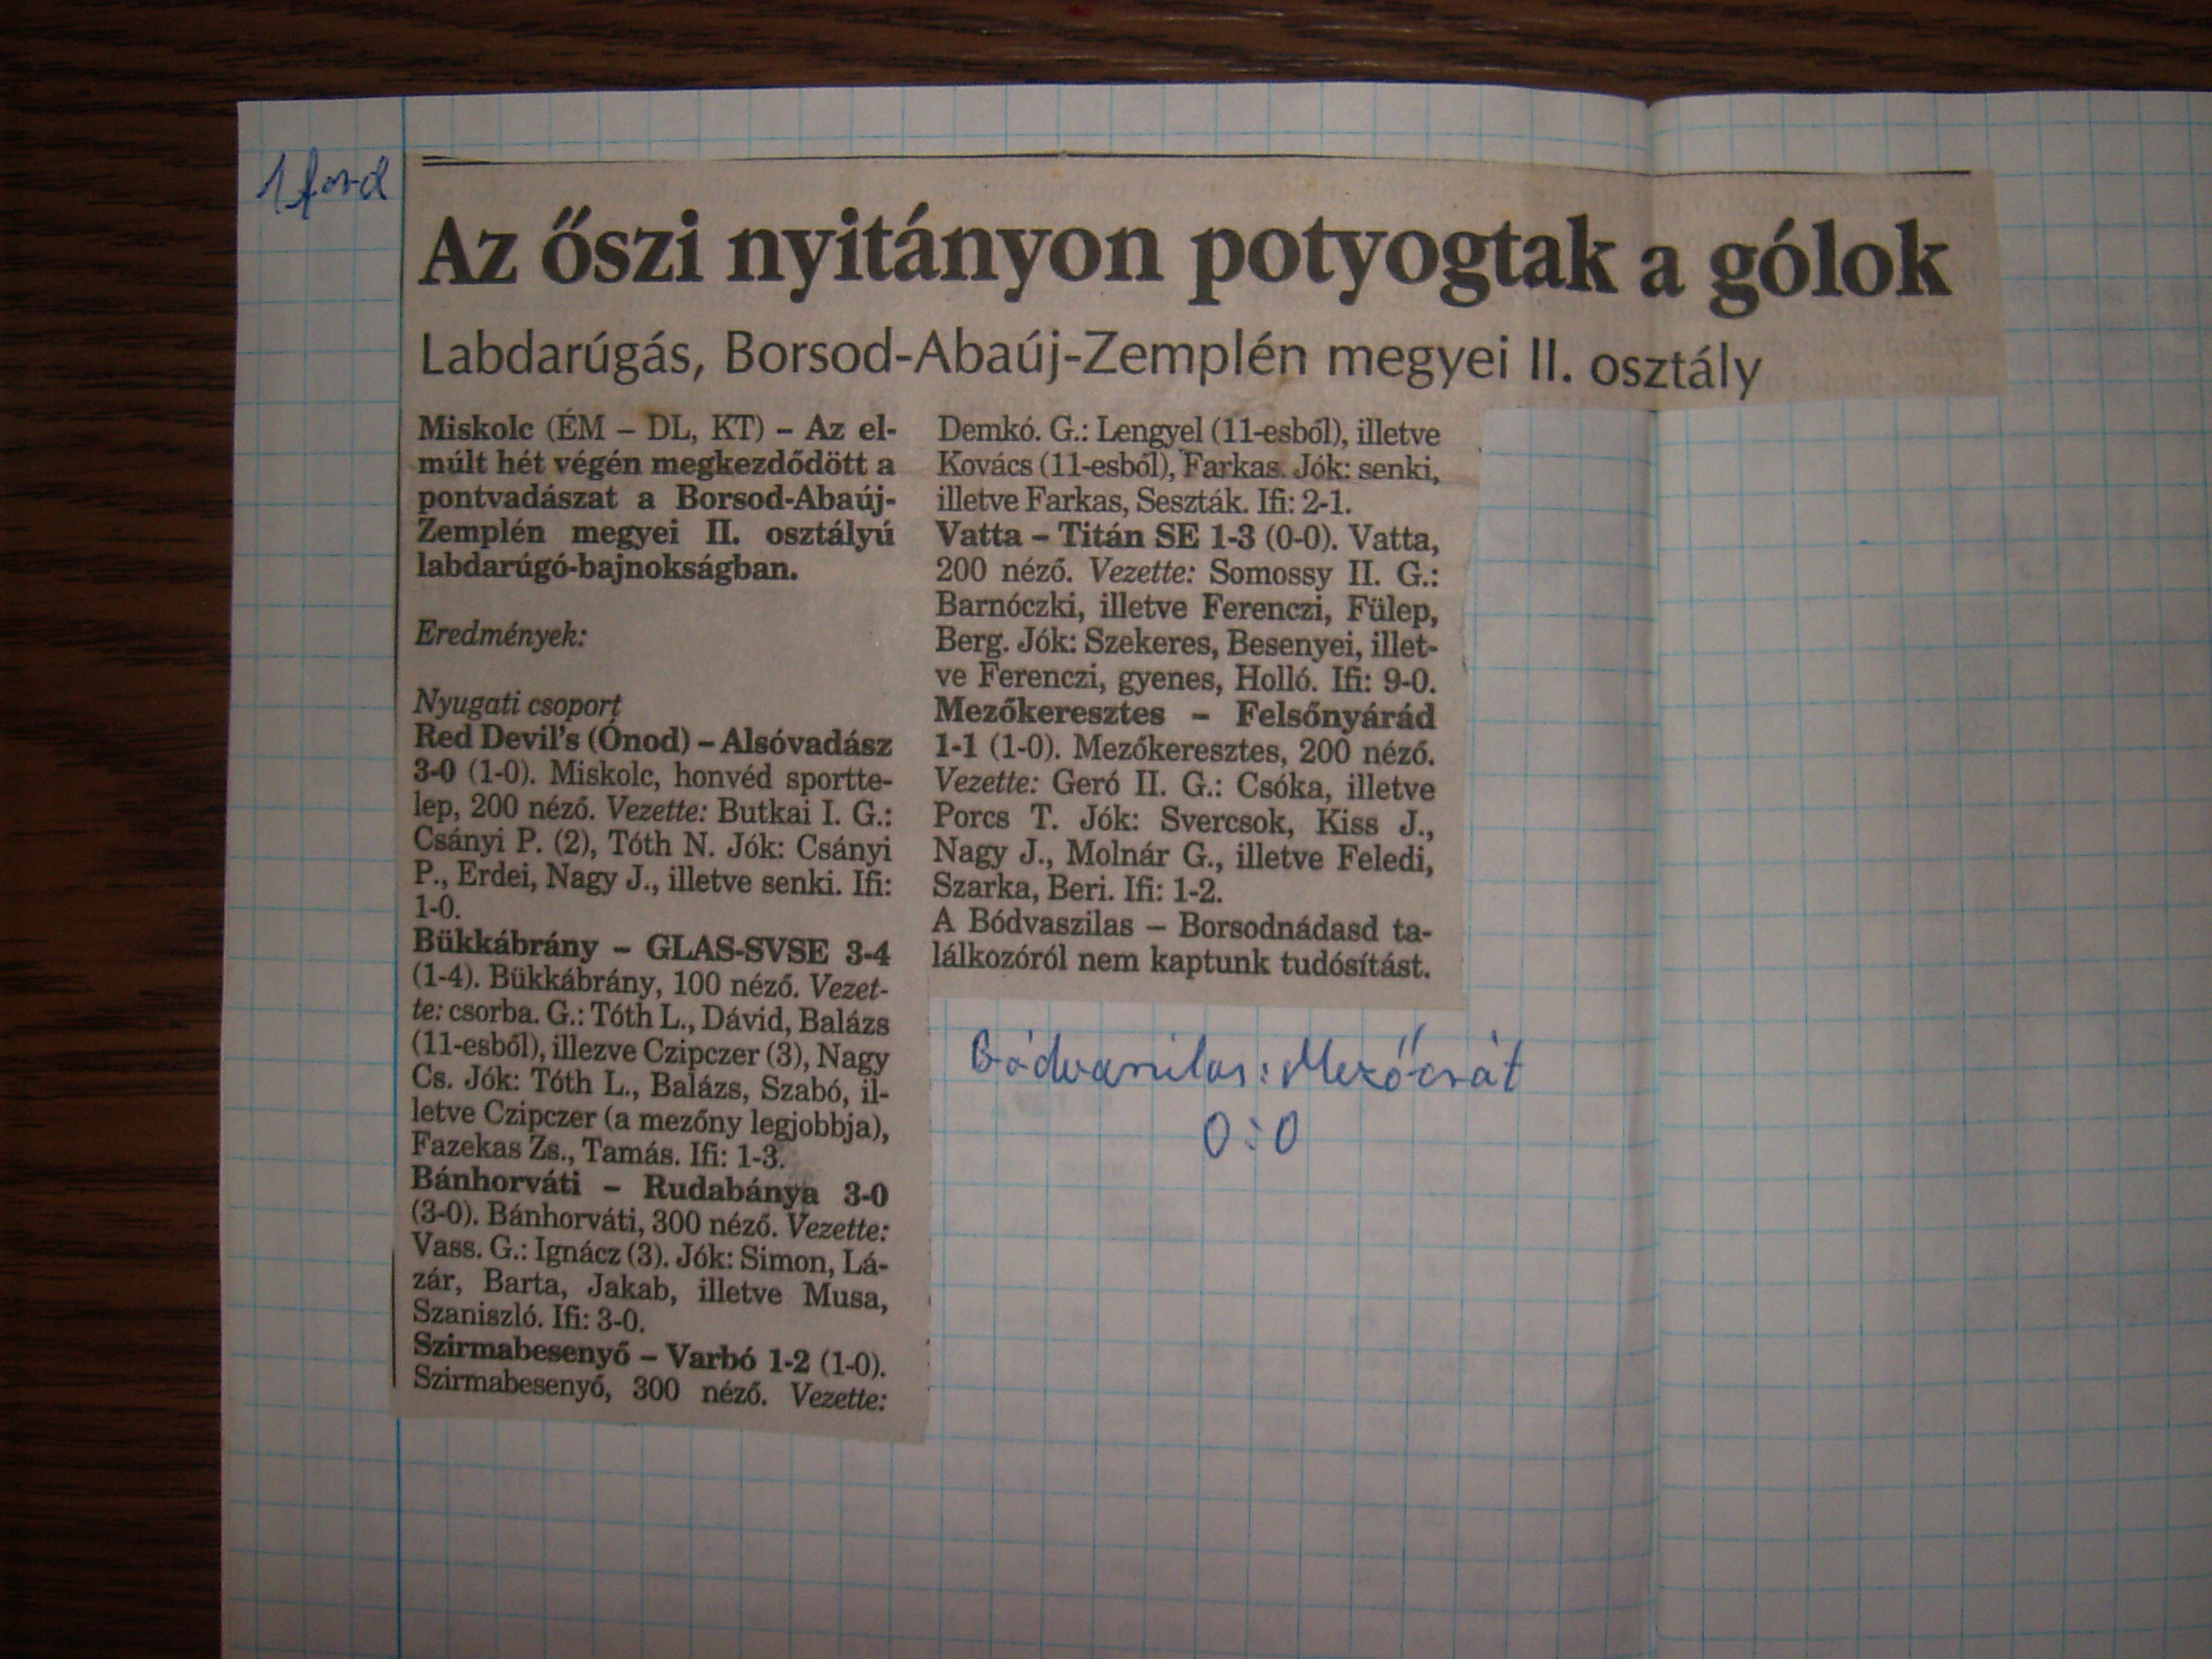 1 ford
Az őszi nyitányon potyogtak a gólok
Labdarúgás, Borsod-Abaúj-Zemplén megyei II. osztály
Miskolc (ÉM – DL, KT) – Az el-
múlt hét végén megkezdődött a
pontvadászat a Borsod-Abaúj-
Zemplén megyei II. osztályú
labdarúgó-bajnokságban.
Eredmények:
Nyugati csoport
Red Devil's (Ónod) – Alsóvadász
3-0 (1-0). Miskolc, honvéd sportte-
lep, 200 néző. Vezette: Butkai I. G.:
Csányi P. (2), Tóth N. Jók: Csányi
P., Erdei, Nagy J., illetve senki. Ifi:
1-0.
Bükkábrány – GLAS-SVSE 3-4
(1-4). Bükkábrány, 100 néző. Vezet-
te: csorba. G.: Tóth L., Dávid, Balázs
(11-esből), illezve Czipczer (3), Nagy
Cs. Jók: Tóth L., Balázs, Szabó, il-
letve Czipczer (a mezőny legjobbja),
Fazekas Zs., Tamás. Ifi: 1-3.
Bánhorváti – Rudabánya 3-0
(3-0). Bánhorváti, 300 néző. Vezette:
Vass. G.: Ignácz (3). Jók: Simon, Lá-
zár, Barta, Jakab, illetve Musa,
Szaniszló. Ifi: 3-0.
Szirmabesenyő – Varbó 1-2 (1-0).
Szirmabesenyő, 300 néző. Vezette:
Demkó. G.: Lengyel (11-esből), illetve
Kovács (11-esből), Farkas. Jók: senki,
illetve Farkas, Seszták. Ifi: 2-1.
Vatta – Titán SE 1-3 (0-0). Vatta,
200 néző. Vezette: Somossy II. G.:
Barnóczki, illetve Ferenczi, Fülep,
Berg. Jók: Szekeres, Besenyei, illet-
ve Ferenczi, gyenes, Holló. Ifi: 9-0.
Mezőkeresztes – Felsőnyárád
1-1 (1-0). Mezőkeresztes, 200 néző.
Vezette: Geró II. G.: Csóka, illetve
Porcs T. Jók: Svercsok, Kiss J.,
Nagy J., Molnár G., illetve Feledi,
Szarka, Beri. Ifi: 1-2.
A Bódvaszilas – Borsodnádasd ta-
lálkozóról nem kaptunk tudósítást.
Bódvaszilas : Mezőcsát
0 : 0